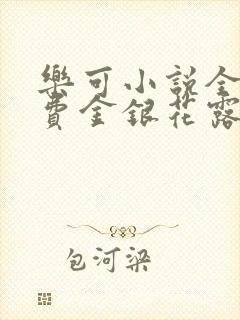 樂可小說全
費金銀花露
包河梁